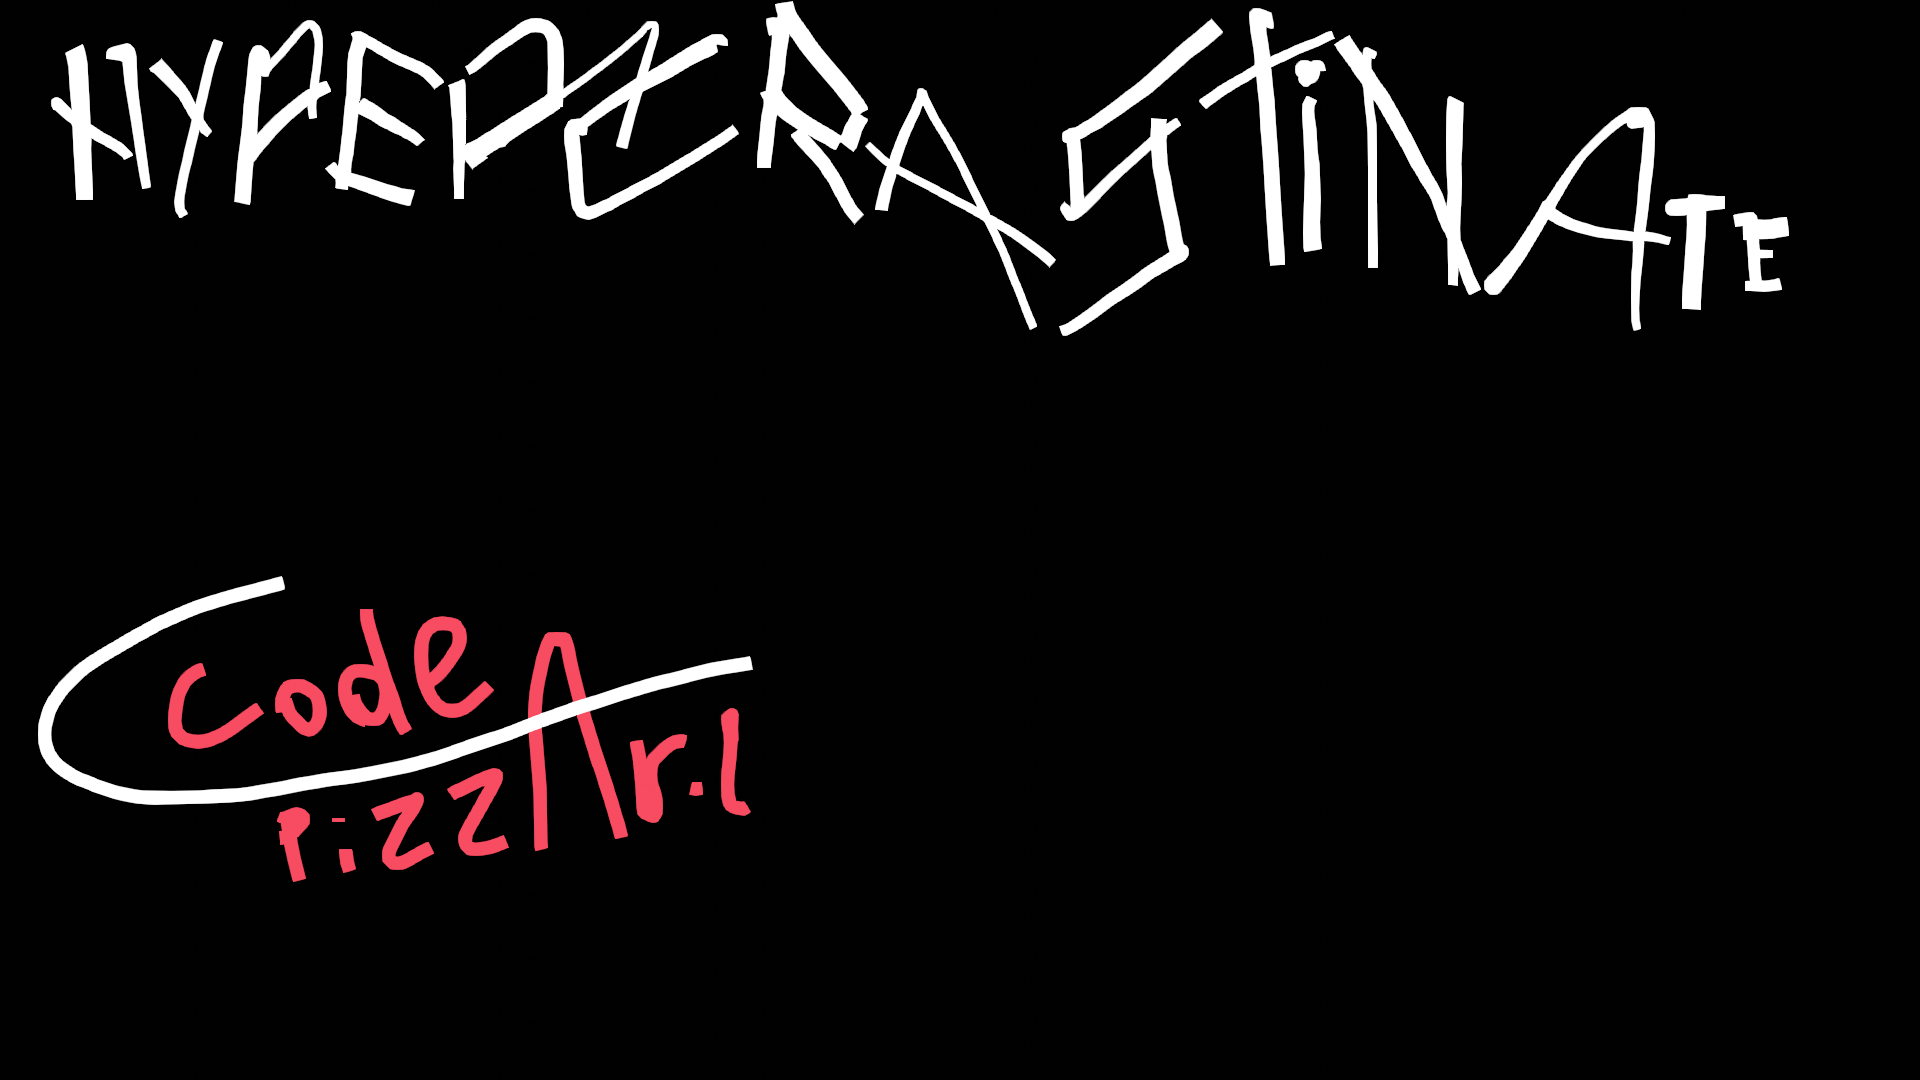 HYPERCRASTiNATE
Code
PizzAr.l